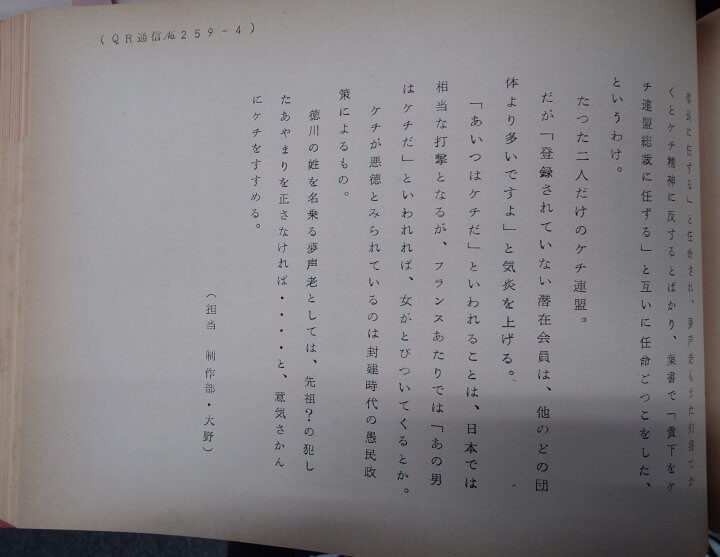 (QR通信№259-4)
事長に任ずる」と任命され、夢声老もまた封書でか
くとケチ精神に反するとばかり、葉書で「貴下をケ
チ連盟総裁に任ずる」と互いに任命ごっこをした、
というわけ。
たった二人だけのケチ連盟。
だが「登録されていない潜在会員は、他のどの団
体より多いですよ」と気炎を上げる。
「あいつはケチだ」といわれることは、日本では
相当な打撃となるが、フランスあたりでは「あの男
はケチだ」といわれれば、女がとびついてくるとか。
ケチが悪徳とみられているのは封建時代の愚民政
策によるもの。
徳川の姓を名乗る夢声老としては、先祖?の犯し
たあやまりを正さなければ・・・・と、意気さかん
にケチをすすめる。
(担当 制作部・大野)